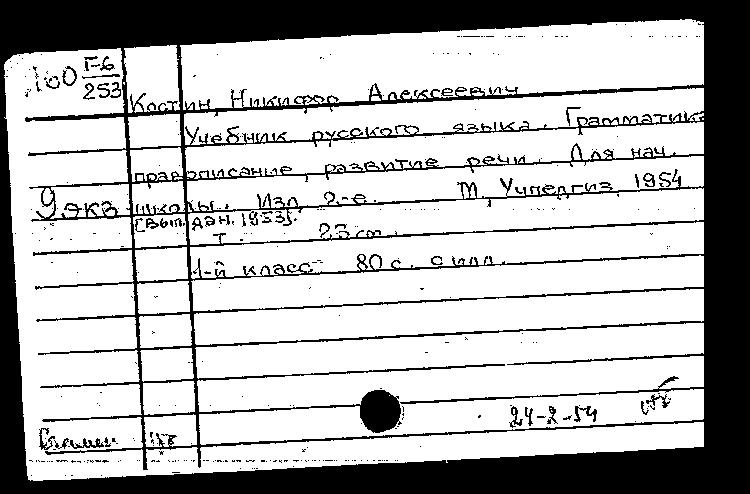 Г-6
160 253
Костин, Никифор Алексеевич
Учебник русского языка. Грамматика
правописание, развитие речи. Для нач.
9 экз школы. Изд. 2-е. М, Учпедгиз, 1954
[Вып. дан. 1953].
Т 23 cm.
1-й класс 80 с. с илл.
24-2-54